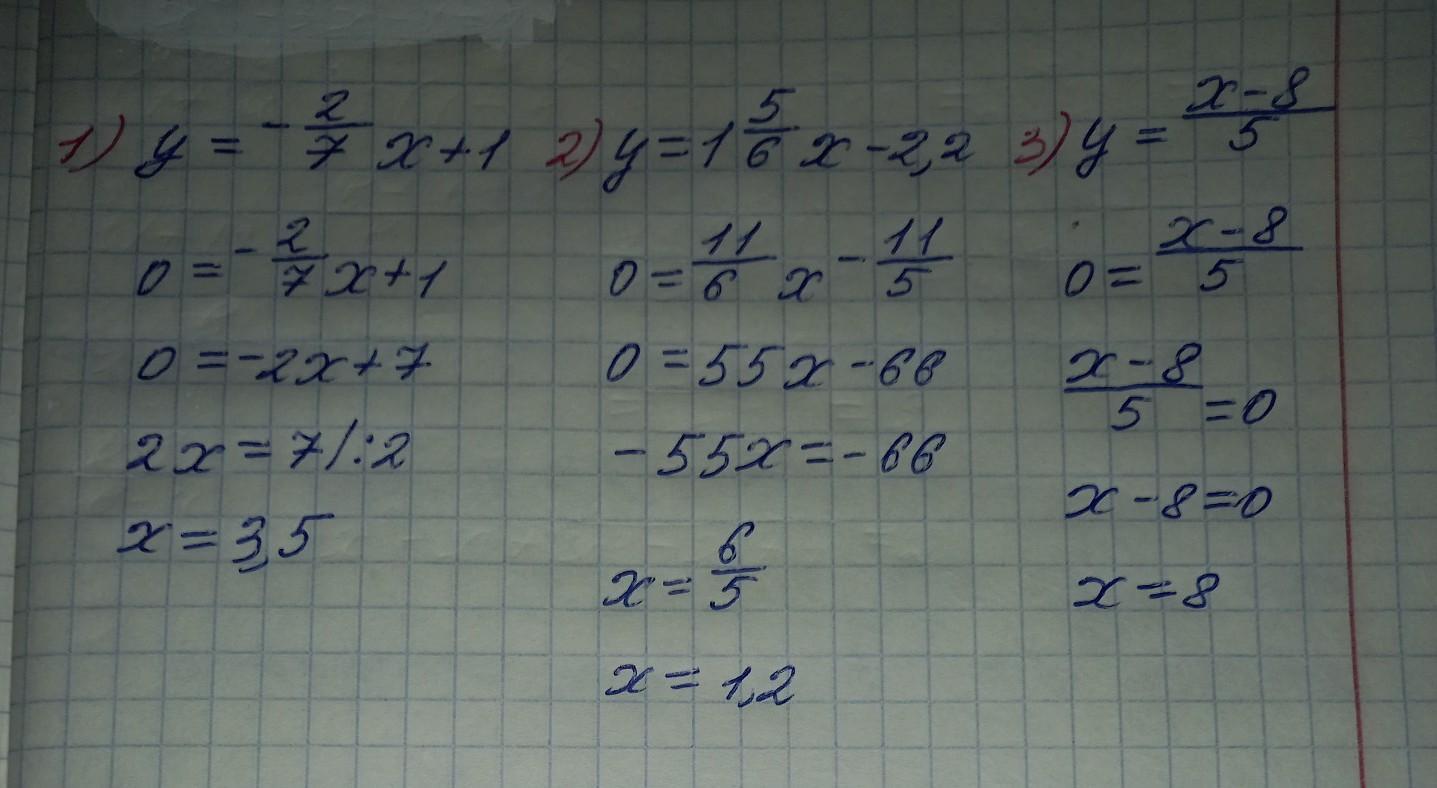 1) y = -2/7 x + 1
0 = -2/7 x + 1
0 = -2x + 7
2x = 7 /:2
x = 3,5
2) y = 1 5/6 x - 2,2
0 = 11/6 x - 11/5
0 = 55x - 66
-55x = -66
x = 6/5
x = 1,2
3) y = x-8/5
0 = x-8/5
x-8/5 = 0
x - 8 = 0
x = 8